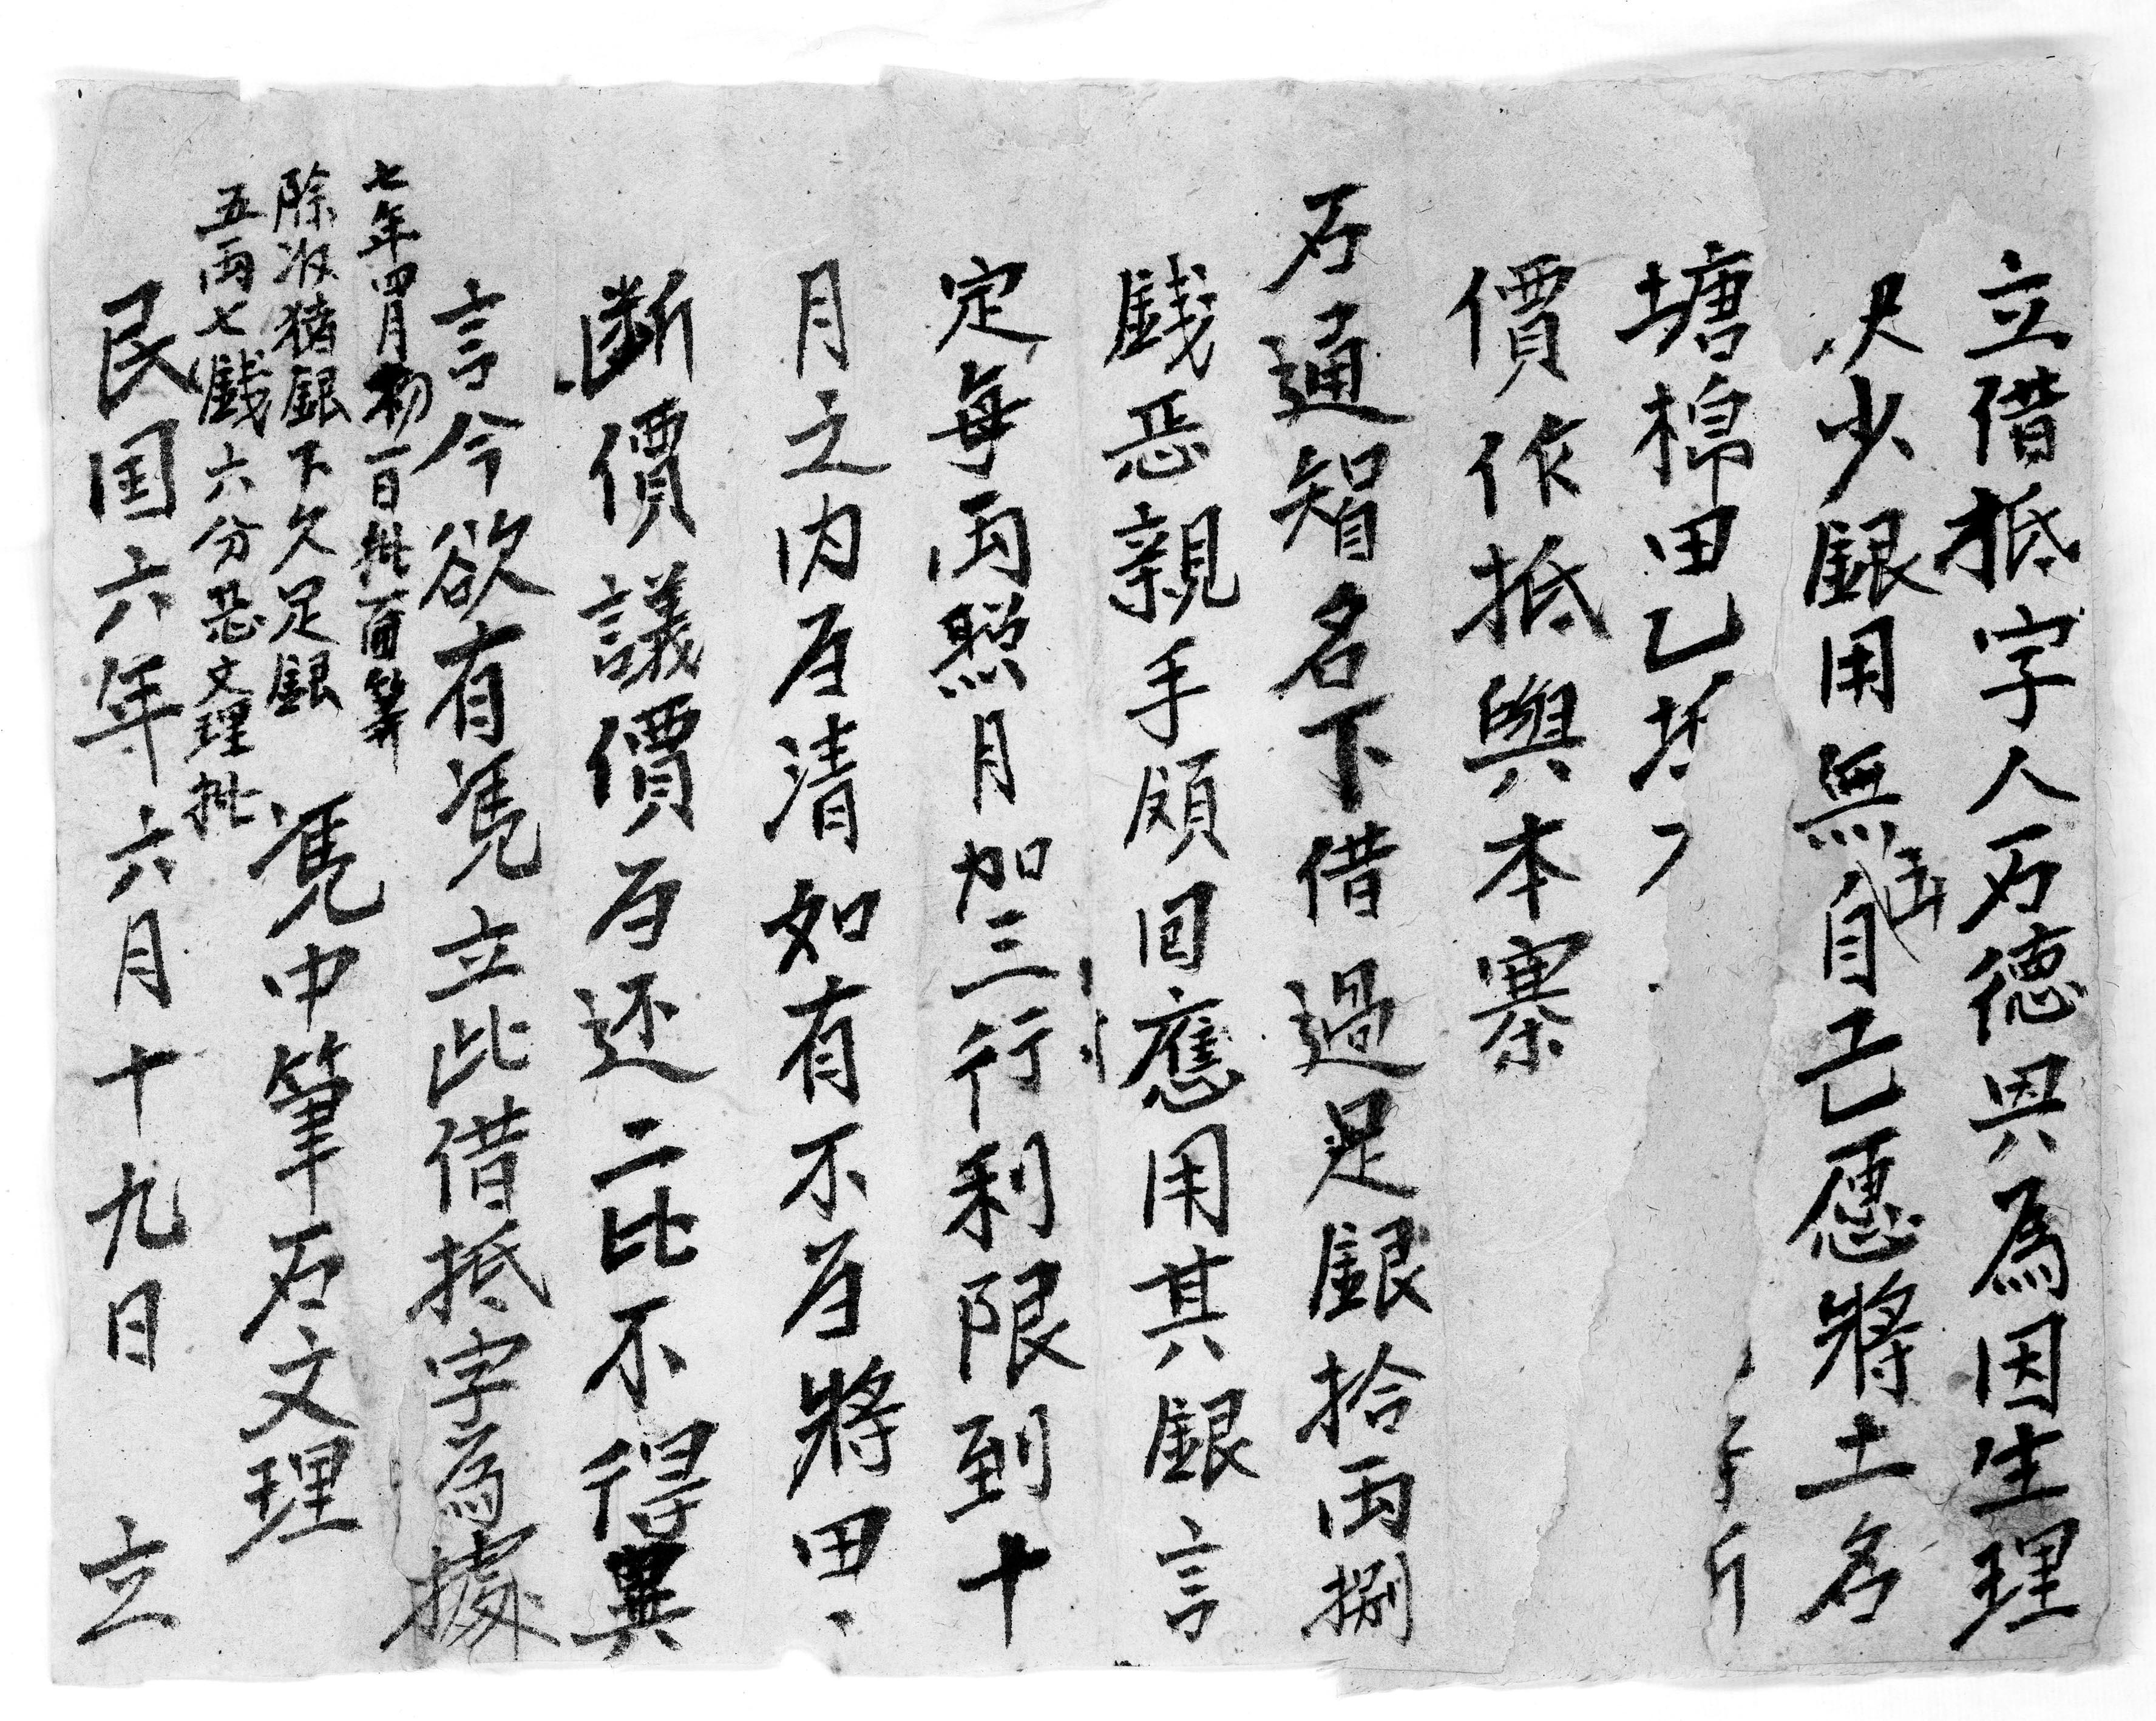 立借抵字人石德興為因生理
決少銀用無伍自己愿將土名
塘棉田乙坵
價作抵與本寨
石通智名下借過足銀拾両捌
錢恶親手領回應用其銀言
定每両照月加三行利限到十
月之内歸清如有不歸將田、
断價議價歸还二比不得異
言今欲有凴立此借抵字為據
七年四月初一日批面筭
除收猪銀下欠足銀
五両七錢六分恶文理批
凴中筆石文理
民国六年六月十九日 立